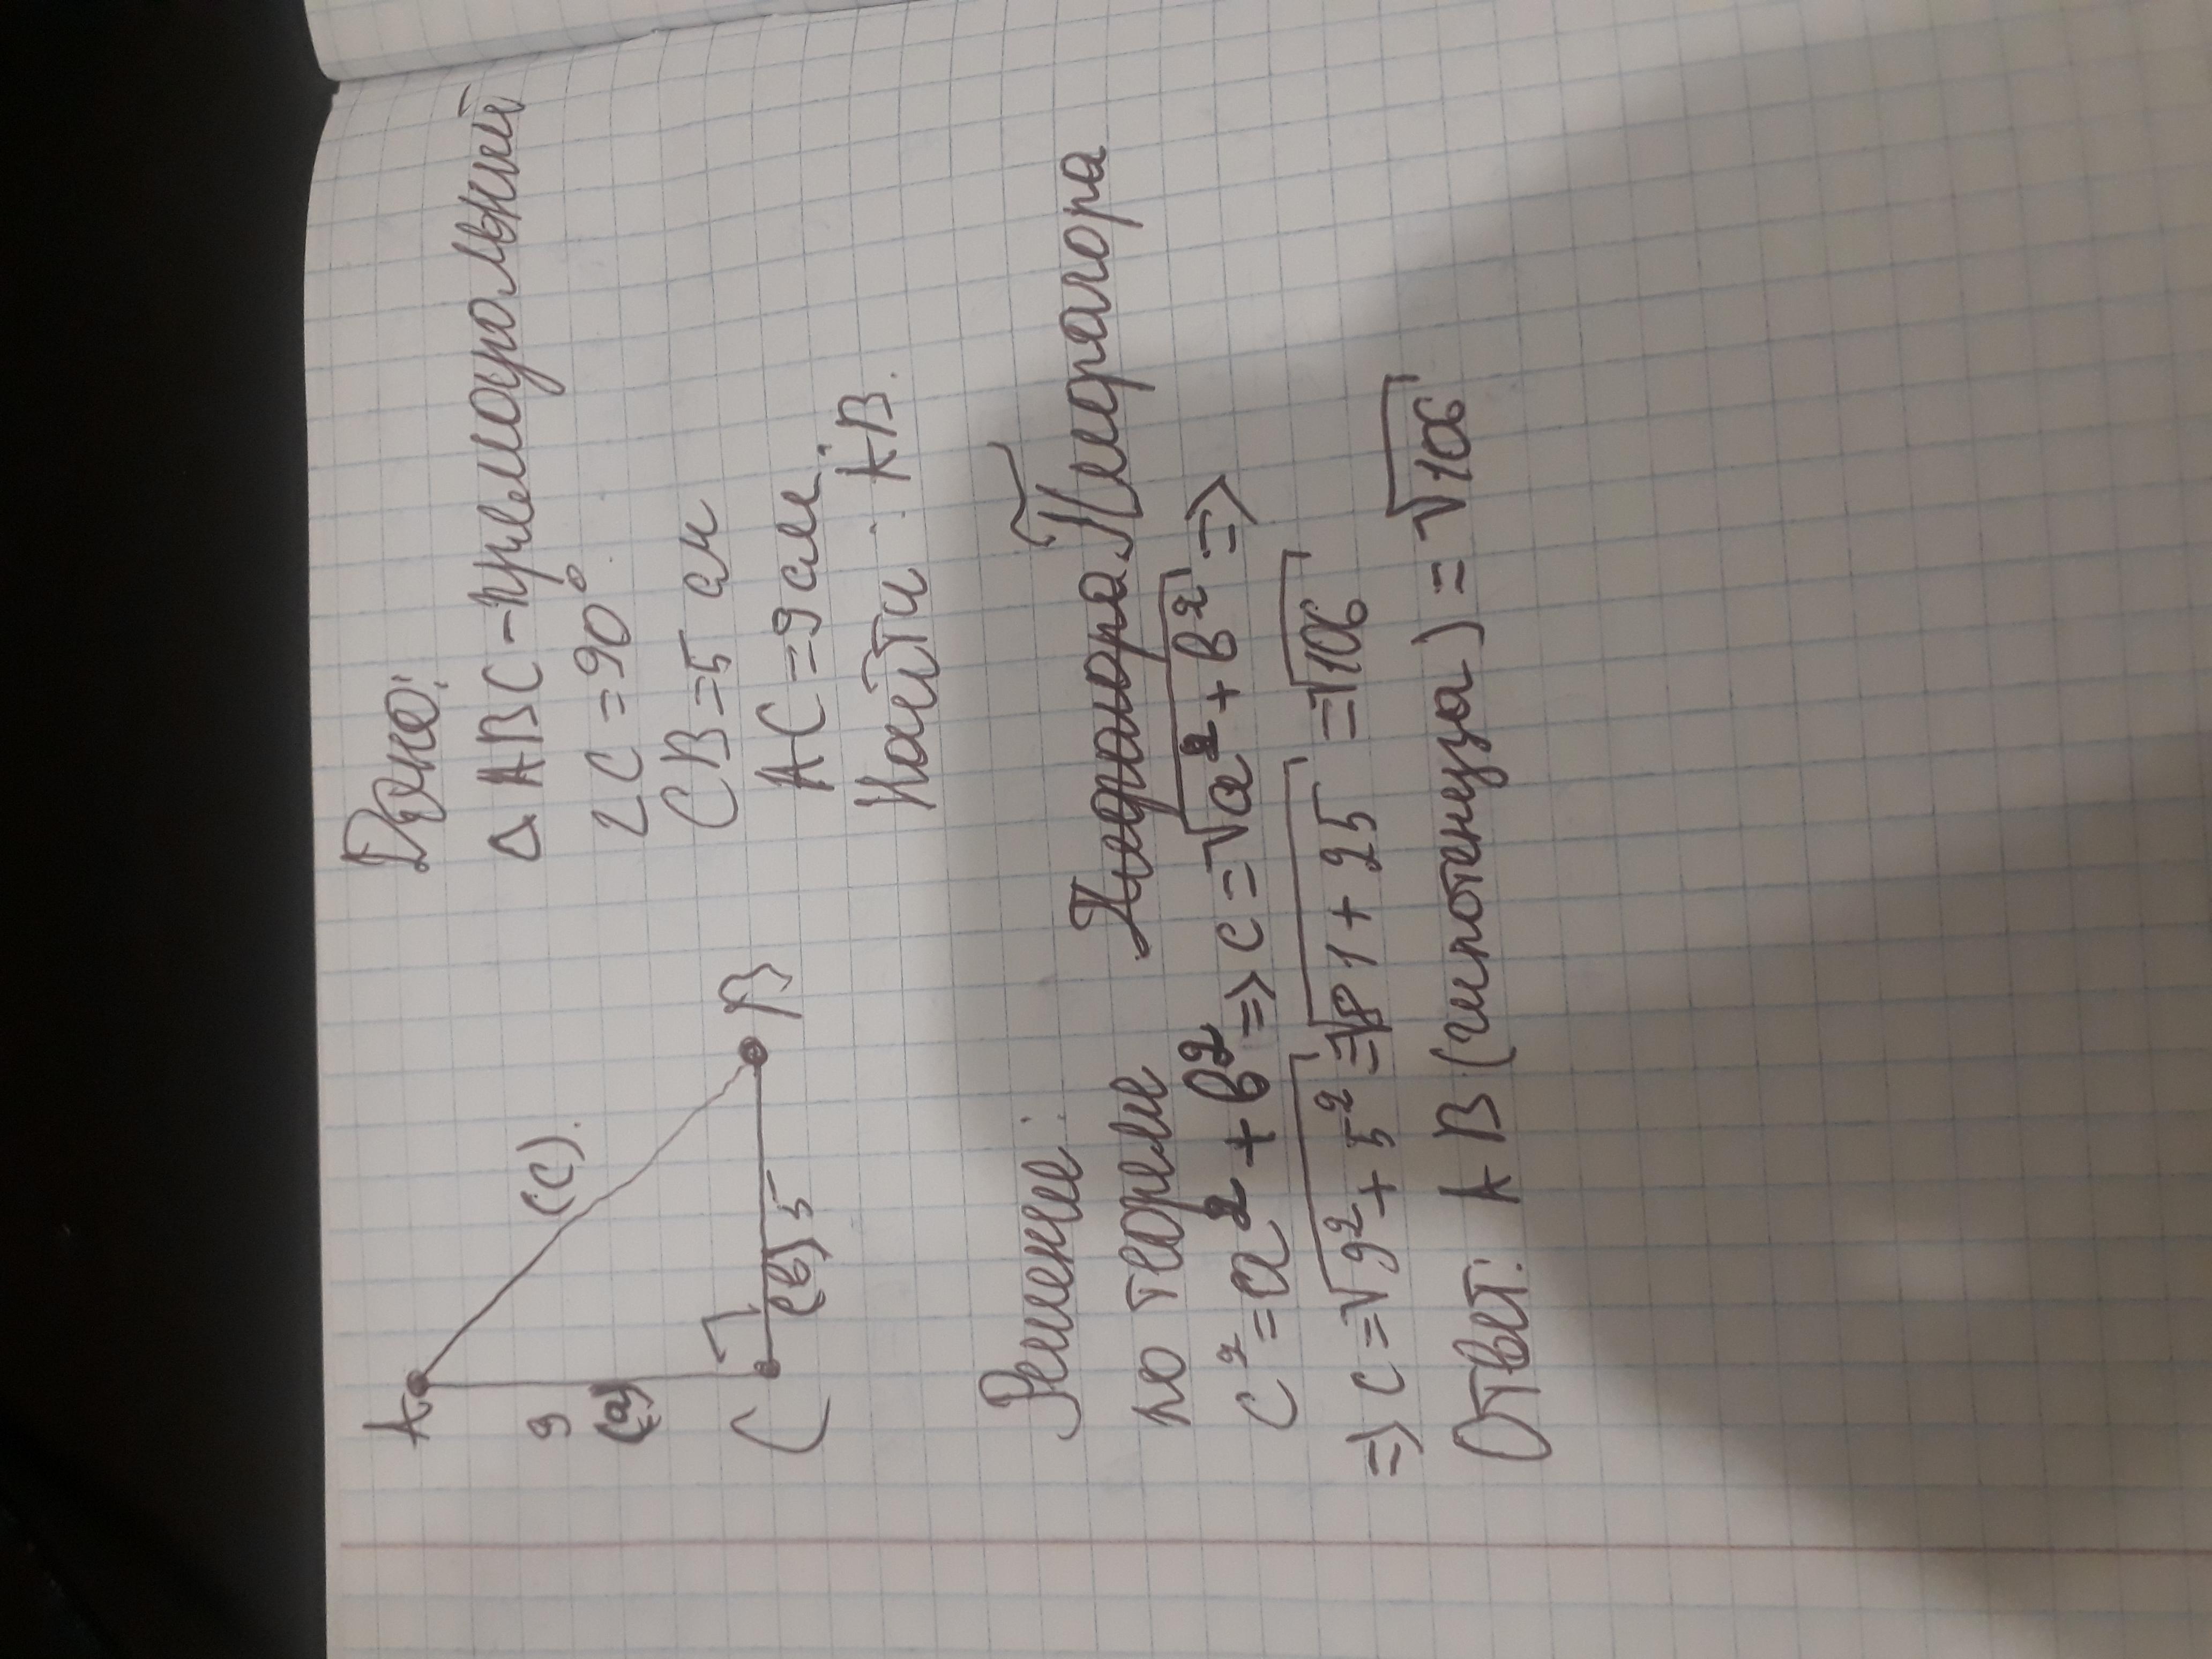 Дано:
Δ ABC - прямоугольний
∠C = 90°.
CB = 5 см
AC = 9 см.
Найти: AB.
A
9
(a)
(c).
C
(в) 5
B
Решение:
по теореме Пифагора
c² = a² + в² => c = √a² + в² =>
=> c = √9² + 5² = √81 + 25 = √106
Ответ: AB (гипотенуза) = √106